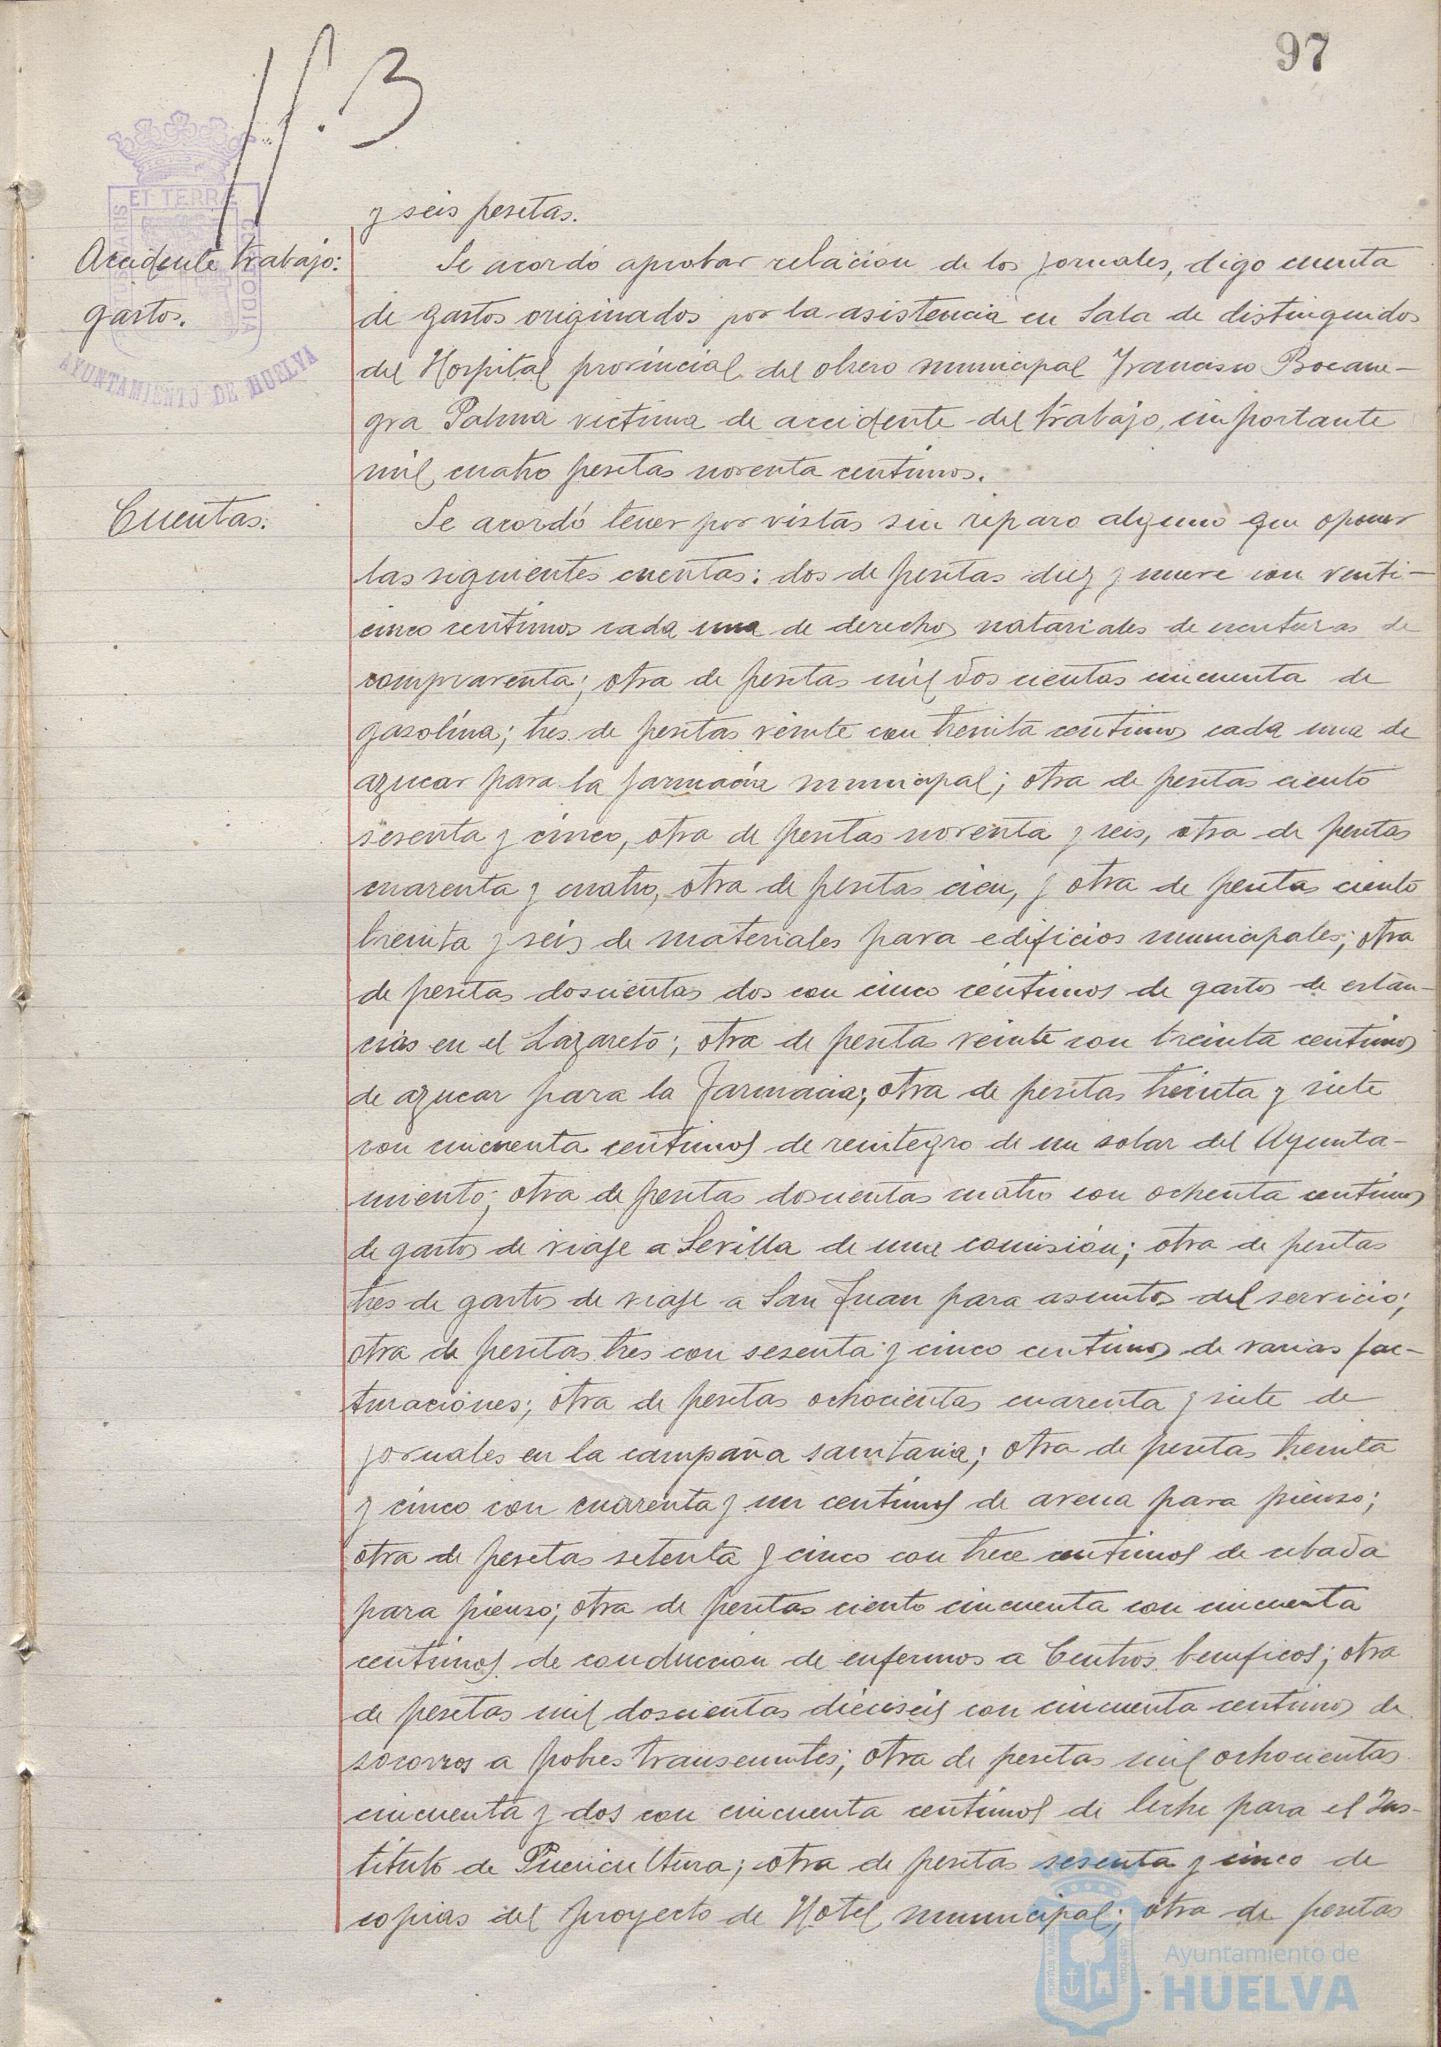 97
y seis pesetas.
Accidente trabajo:
gastos.
Se acordó aprobar relación de los jornales, digo cuenta
de gastos originados por la asistencia en Sala de distinguidos
del Hospital provincial del obrero municipal Francisco Bocane-
gra Palma victima de accidente del trabajo, importante
mil cuatro pesetas noventa centimos.
Cuentas.
Se acordó tener por vistas sin reparo alguno que oponer
las siguientes cuentas: dos de pesetas diez y nueve con venti-
cinco centimos cada una de derechos notariales de escrituras de
compraventa; otra de pesetas mil doscientas cincuenta de
gasolina; tres de pesetas veinte con treinta centimos cada una de
azucar para la farmacia municipal; otra de pesetas ciento
sesenta y cinco, otra de pesetas noventa y seis, otra de pesetas
cuarenta y cuatro, otra de pesetas cien, y otra de pesetas ciento
treinta y seis de materiales para edificios municipales; otra
de pesetas doscientas dos con cinco centimos de gastos de estan-
cias en el Lazareto; otra de pesetas veinte con treinta centimos
de azucar para la Farmacia; otra de pesetas treinta y siete
con cincuenta centimos de reintegro de un solar del Ayunta-
miento; otra de pesetas doscientas cuatro con ochenta centimos
de gastos de viaje a Sevilla de una comisión; otra de pesetas
tres de gastos de viaje a San Juan para asuntos del servicio;
otra de pesetas tres con sesenta y cinco centimos de varias fac-
turaciones; otra de pesetas ochocientas cuarenta y siete de
jornales en la campaña sanitaria; otra de pesetas treinta
y cinco con cuarenta y un centimos de avena para pienso;
otra de pesetas setenta y cinco con trece centimos de cebada
para pienso; otra de pesetas ciento cincuenta con cincuenta
centimos de conducción de enfermos a Centros beneficos; otra
de pesetas mil doscientas dieciseis con cincuenta centimos de
socorros a pobres transeuntes; otra de pesetas mil ochocientas
cincuenta y dos con cincuenta centimos de leche para el Ins-
tituto de Puericultura; otra de pesetas sesenta y cinco de
copias del proyecto de Hotel municipal; otra de pesetas
ET TERRÆ
CUSTODIA
AYUNTAMIENTO DE HUELVA
Ayuntamiento de
HUELVA